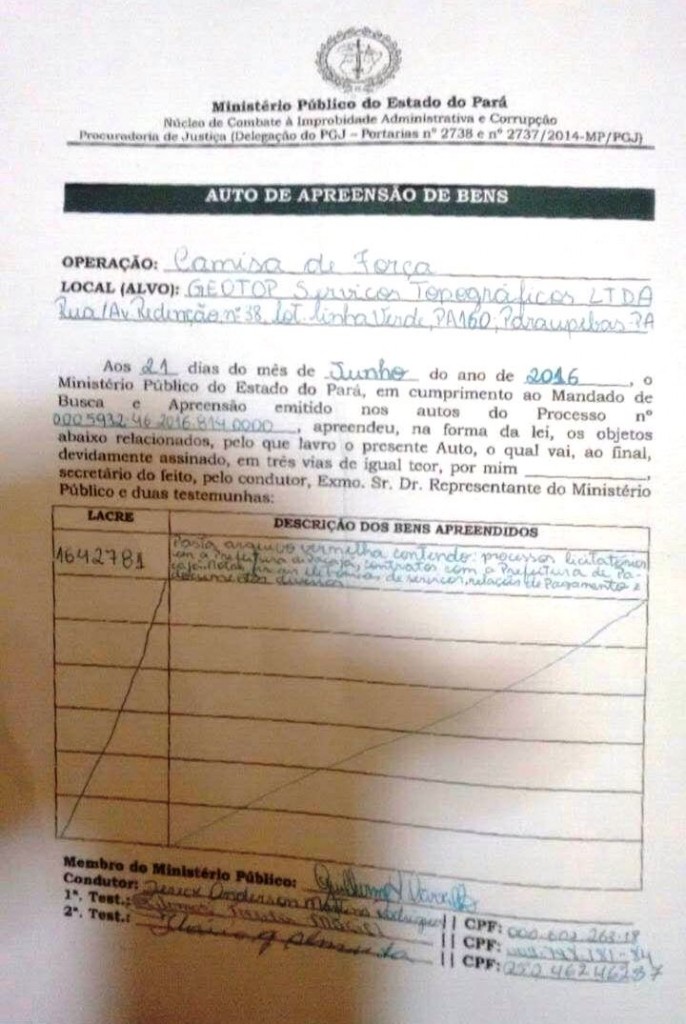 Ministério Público do Estado do Pará
Núcleo de Combate à Improbidade Administrativa e Corrupção
Procuradoria de Justiça (Delegação do PGJ – Portarias nº 2738 e nº 2737/2014-MP/PGJ)
AUTO DE APREENSÃO DE BENS
OPERAÇÃO: Camisa de Força
LOCAL (ALVO): GEOTOP Serviços Topográficos LTDA
Rua/Av Redenção nº 38, lot. linha Verde, PA160, Parauapebas-PA
Aos 21 dias do mês de Junho do ano de 2016, o
Ministério Público do Estado do Pará, em cumprimento ao Mandado de
Busca e Apreensão emitido nos autos do Processo nº
0005932.46.2016.814.0000, apreendeu, na forma da lei, os objetos
abaixo relacionados, pelo que lavro o presente Auto, o qual vai, ao final,
devidamente assinado, em três vias de igual teor, por mim ____________,
secretário do feito, pelo condutor, Exmo. Sr. Dr. Representante do Ministério
Público e duas testemunhas:
LACRE DESCRIÇÃO DOS BENS APREENDIDOS
1642781 Pasta arquivo vermelha contendo: processos licitatórios
com a Prefeitura de Pacajá, contratos com a Prefeitura de Pa-
cajá, Notas fiscais eletrônicas de serviços, relação de Pagamento e
documentos diversos
Membro do Ministério Público:
Condutor: Anderson
1ª. Test.: || CPF:
2ª. Test.: || CPF:
|| CPF: 252 462 462 87